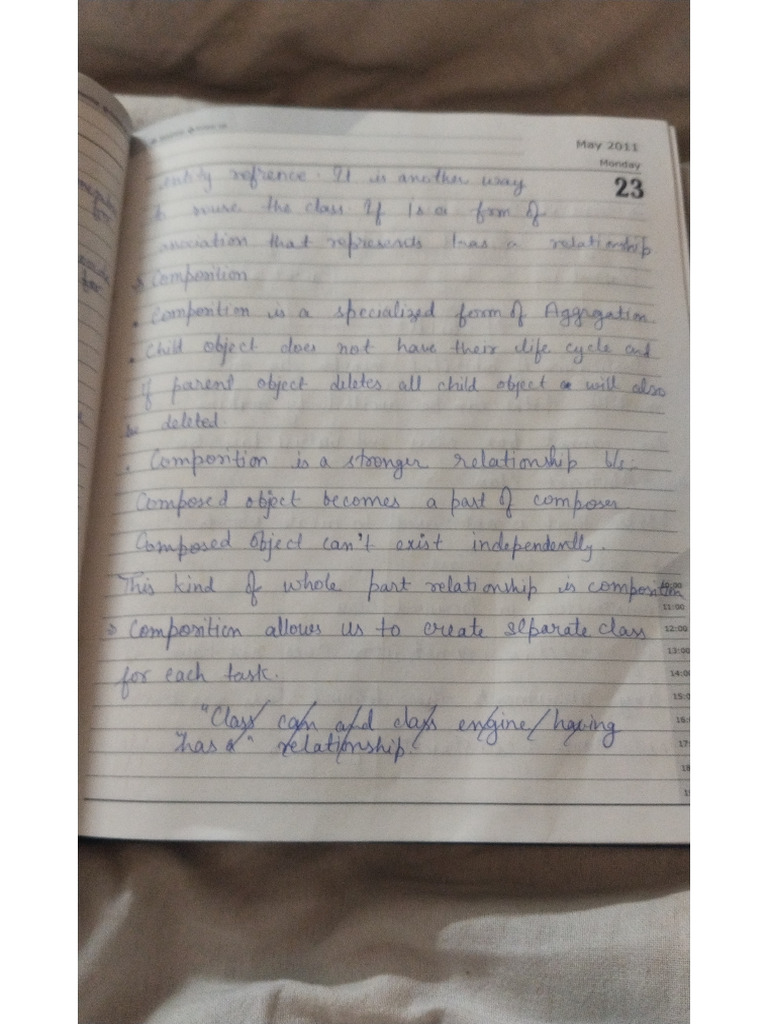 May 2011
Monday
23
entity refrence. It is another way
to reuse the class. If is a form of
association that represents has a relationship
Composition
• Composition is a specialized form of Aggregation.
• Child object does not have their life cycle and
if parent object deletes all child object will also
be deleted.
• Composition is a stronger relationship b/c:-
Composed object becomes a part of composer
Composed object can't exist independently.
This kind of whole part relationship is composition
10:00
11:00
⇒ Composition allows us to create separate class
12:00
13:00
for each task.
14:00
15:
"Class can and class engine having
16:
has a" relationship.
17:
18
1